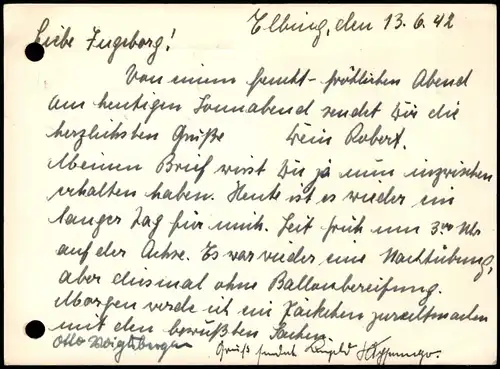 Elbing, den 13.6.42
Liebe Ingeborg!
Von einem feucht-fröhlichen Abend
am heutigen Sonnabend sendet Dir die
herzlichsten Grüße Dein Robert.
Meinen Brief wirst Du ja nun inzwischen
erhalten haben. Heute ist es wieder ein
langer Tag für mich. Seit früh um 3 00 Uhr
auf der Achse. Es war wieder eine Nachtübung,
aber diesmal ohne Ballonbereifung.
Morgen werde ich ein Päckchen zurechtmachen
mit den bewußten Sachen.
Otto Gruß sendet